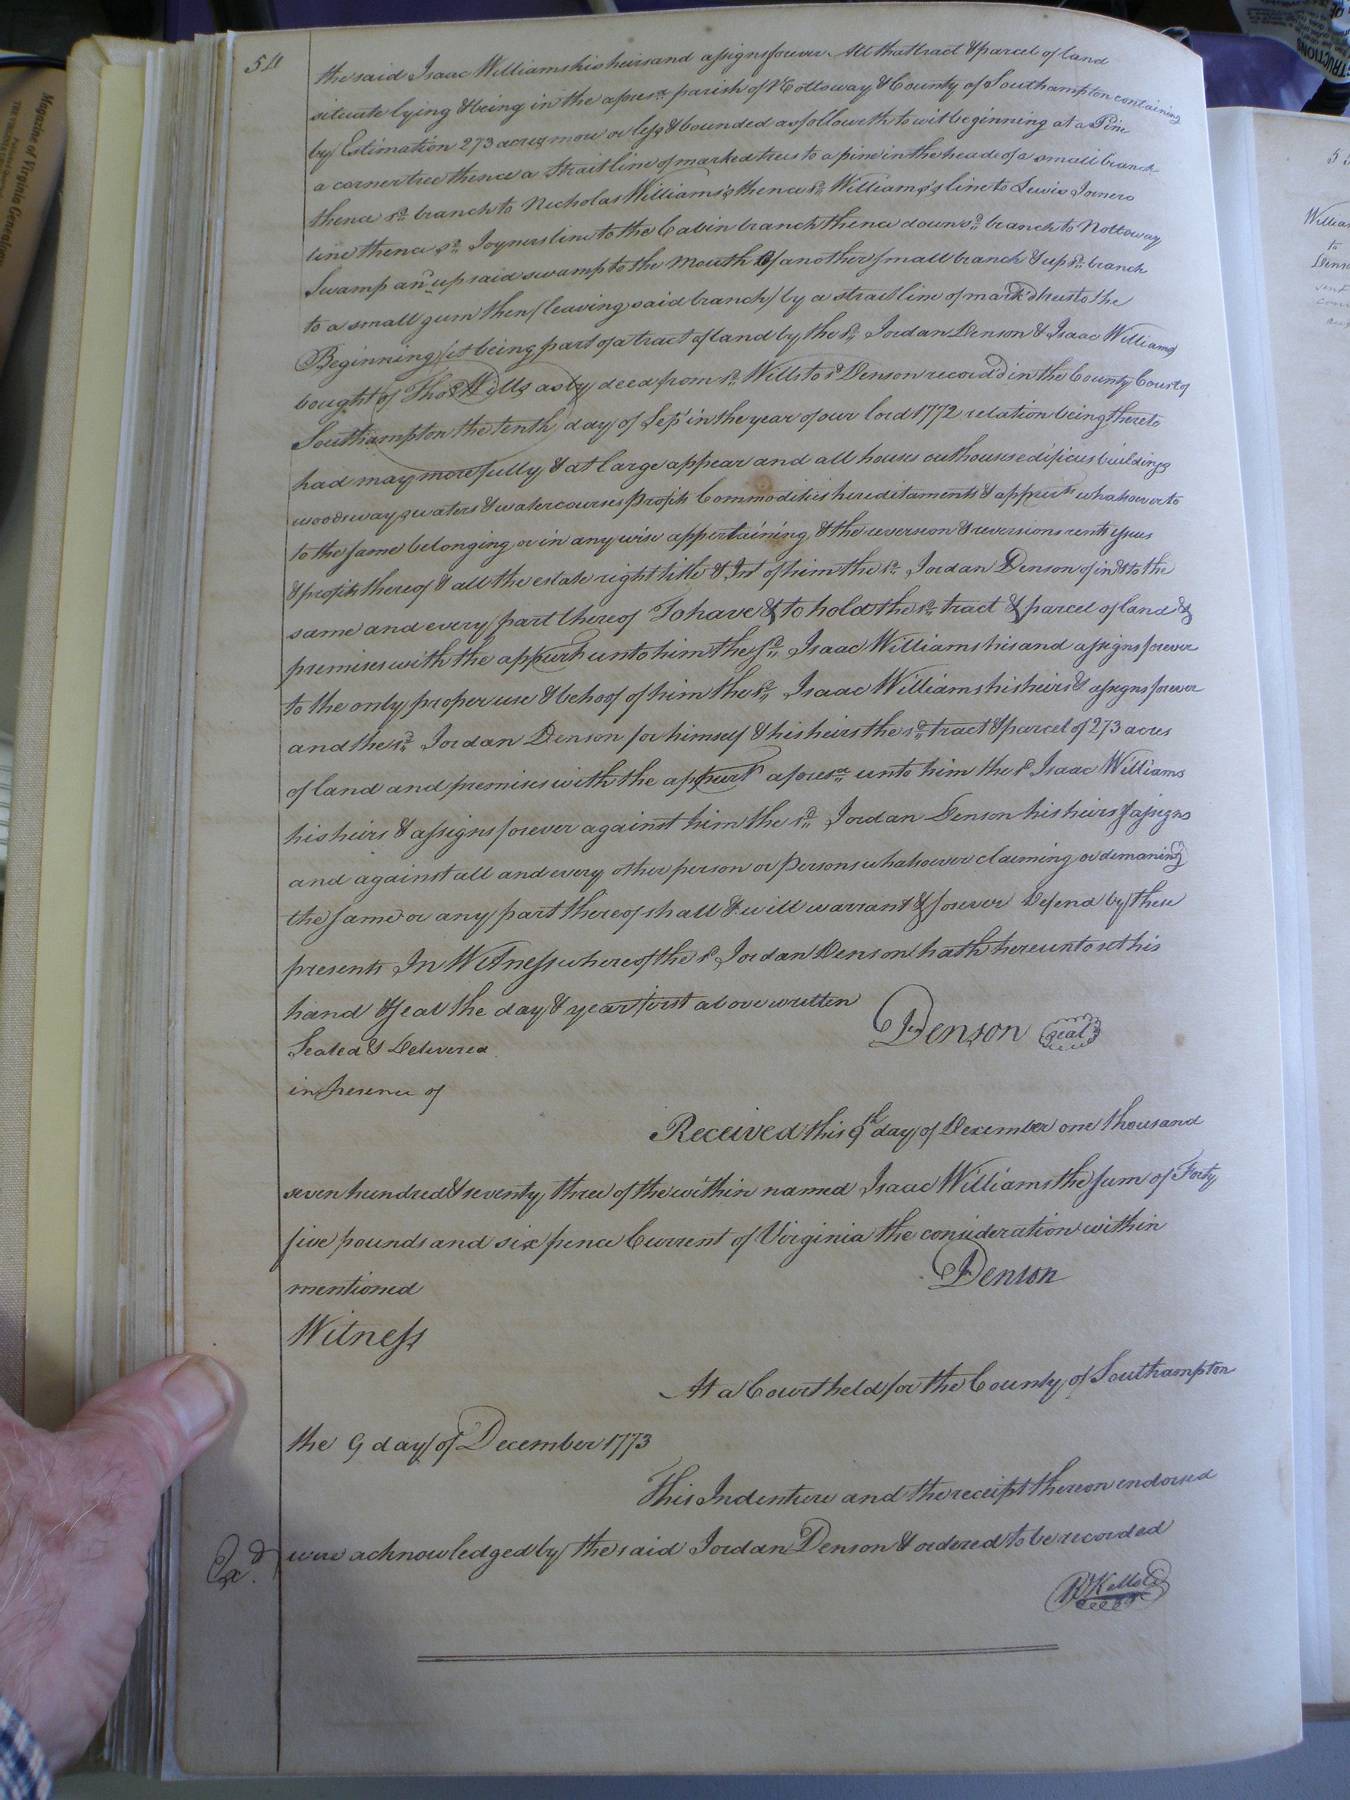 54
the said Isaac Williams his heirs and assigns forever All that tract & parcel of land
situate lying & being in the afores.d parish of Nottoway & County of Southampton containing
by Estimation 273 acres more or less & bounded as followeth to wit beginning at a Pine
a corner tree thence a strait line of marked trees to a pine in the head of a small branch
thence s.d branch to Nicholas Williams's thence s.d Williams's line to Lewis Joiners
line thence s.d Joyners line to the Cabin branch thence down s.d branch to Nottoway
Swamp an up said swamp to the mouth of another small branch & up s.d branch
to a small gum then (leaving said branch) by a strait line of mark'd trees to the
Beginning (it being part of a tract of land by the s.d Jordan Denson & Isaac Williams
bought of Tho.s Wills as by deed from s.d Wills to s.d Denson record'd in the County Court of
Southampton the tenth day of Sep.t in the year of our lord 1772 relation being thereto
had may more fully & at large appear and all houses outhouses edifices buildings
woods ways waters & watercourses profits Commodities hereditaments & appurt.s whatsoever to
to the same belonging or in any wise appertaining & the reversion & reversions rents issues
& profits thereof & all the estate right title & Int of him the s.d Jordan Denson of in & to the
same and every part thereof To have & to hold the s.d tract & parcel of land &
premises with the appurts unto him the s.d Isaac Williams his and assigns forever
to the only proper use & behoof of him the s.d Isaac Williams his heirs & assigns forever
and the s.d Jordan Denson for himself & his heirs the s.d tract & parcel of 273 acres
of land and premises with the appurts afores.d unto him the s.d Isaac Williams
his heirs & assigns forever against him the s.d Jordan Denson his heirs & assigns
and against all and every other person or persons whatsoever claiming or demaning
the same or any part thereof shall & will warrant & forever Defend by these
presents In Witness whereof the s.d Jordan Denson hath hereunto set his
hand & seal the day & year first above written
Jn Denson Seal
Sealed & Delivered
in presence of
Received this 9th day of December one thousand
seven hundred & seventy three of the within named Isaac Williams the sum of Forty
five pounds and six pence Current of Virginia the consideration within
mentioned
Jn Denson
Witness
At a Court held for the County of Southampton
the 9 day of December 1773
This Indenture and the receipt thereon endorsed
Ex.d were acknowledged by the said Jordan Denson & ordered to be recorded
R Kello
Magazine of Virginia Genealogy
Williams
to
Denson